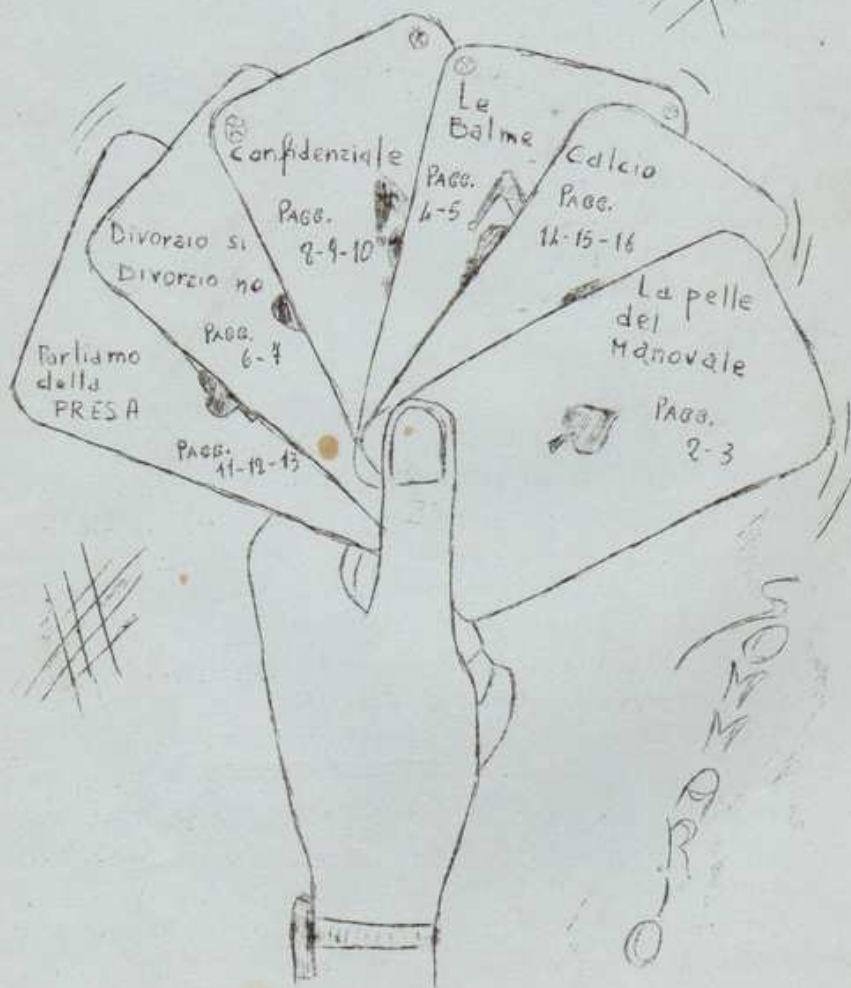 Parliamo
della
PRESA
PAGG.
11-12-13
Divorzio si
Divorzio no
PAGG.
6-7
Confidenziale
PAGG.
8-9-10
Le
Balme
PAGG.
4-5
Calcio
PAGG.
14-15-16
La pelle
del
Manovale
PAGG.
2-3
SOMMARIO